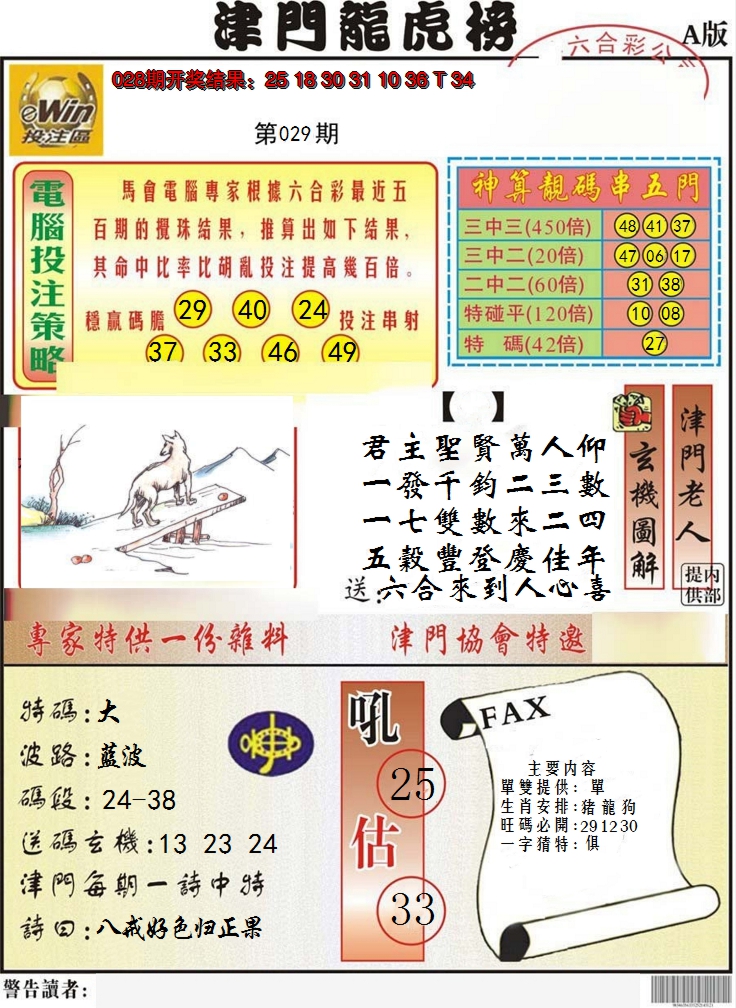 津門龍虎榜
A版
六合彩公
028期开奖结果：25 18 30 31 10 36 T 34
eWin
投注區
第029期
電腦投注策略
馬會電腦專家根據六合彩最近五
百期的攪珠结果，推算出如下结果，
其命中比率比胡亂投注提高幾百倍。
穩贏碼膽 29 40 24 投注串射
37 33 46 49
神算靚碼串五門
三中三(450倍) 48 41 37
三中二(20倍) 47 06 17
二中二(60倍) 31 38
特碰平(120倍) 10 08
特 碼(42倍) 27
【 】
君主聖賢萬人仰
一發千鈞二三數
一七雙數來二四
五穀豐登慶佳年
送:六合來到人心喜
玄機圖解
津門老人
内部提供
專家特供一份雜料
津門協會特邀
特碼:大
波路:藍波
碼段:24-38
送碼玄機:13 23 24
津門每期一詩中特
詩曰:八戒好色归正果
吼
25
估
33
FAX
主要内容
單雙提供: 單
生肖安排:猪龍狗
旺碼必開:291230
一字猜特:俱
警告讀者: